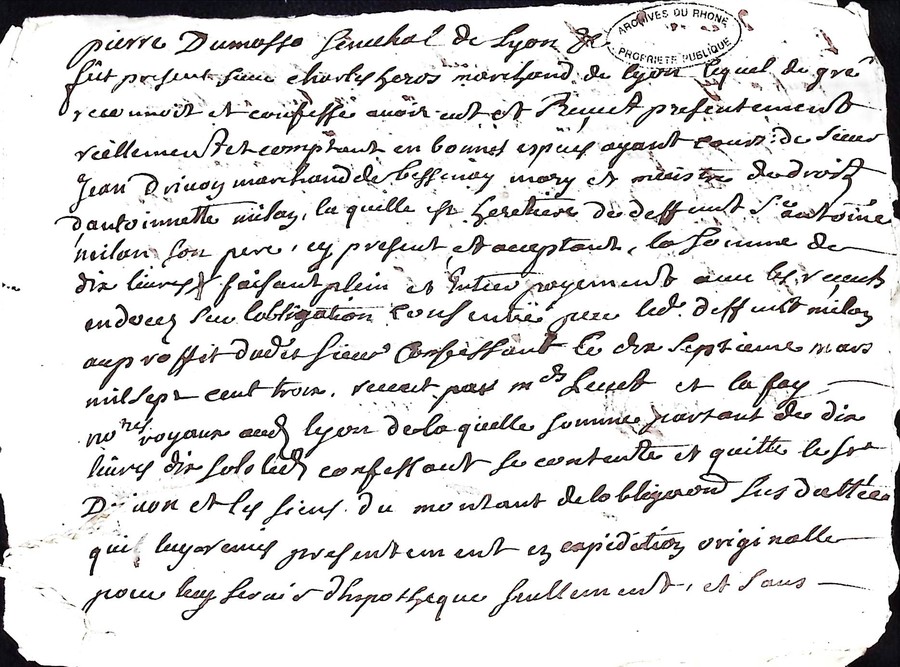 pierre Dumasso senechal de Lyon &c
ARCHIVES DU RHONE
PROPRIETE PUBLIQUE
fut present sieur charles heros marchand de lyon lequel de gre
reconnoit et confesse avoir eut et Receut presentement
reellement et comptant en bonnes espues ayant cours de sieur
Jean Drivon marchand de bessenay mary et maistre des droits
d'antoinette milan, la quelle est heretiere de deffunt Sr antoine
milan son pere, icy present et acceptant, la somme de
dix livres faisant plein et Entier payement avec les receuts
endocez sur lobligation consentüe par led. deffunt milan
au proffit dudit sieur confessant le dix septieme mars
mil sept cent trois, receüt par mes et la fay
nores royaux aud lyon de laquelle somme partant de dix
livres dix sols led confessant se contente et quitte le sr
Drivon et les siens du montant de lobligaon sus dattée
qui luy a remis presentement en expedition originalle
pour luy servir d'hipotheque seullement, et sans